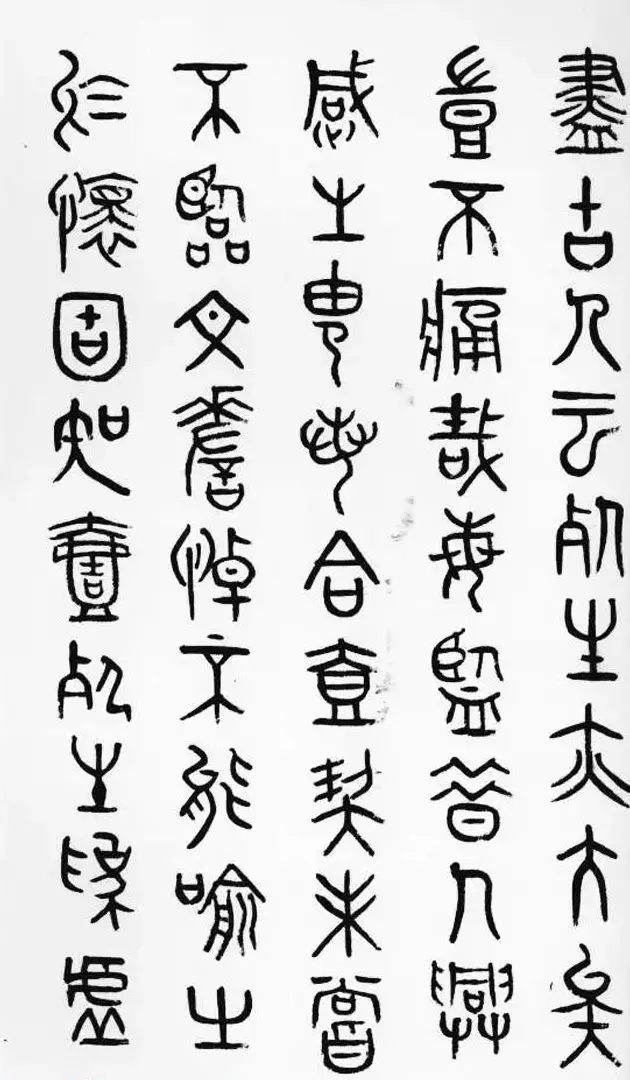 盡古人云死生亦大矣
豈不痛哉每監昔人興
感之由若合壹契未嘗
不臨文嗟悼不能喻之
於懷固知壹死生為虛